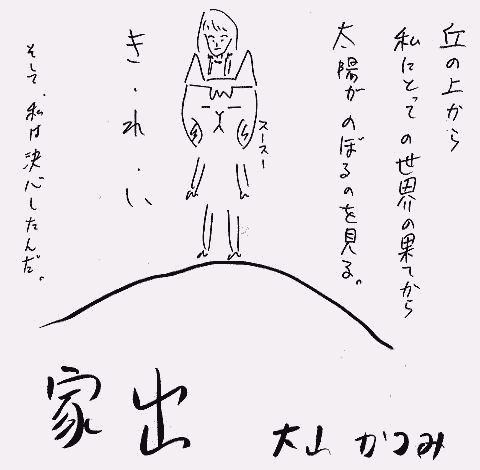 丘の上から
私にとっての世界の果てから
太陽がのぼるのを見る。
スースー
き・れ・い
そして、私は決心したんだ。
家出
大山 かつみ